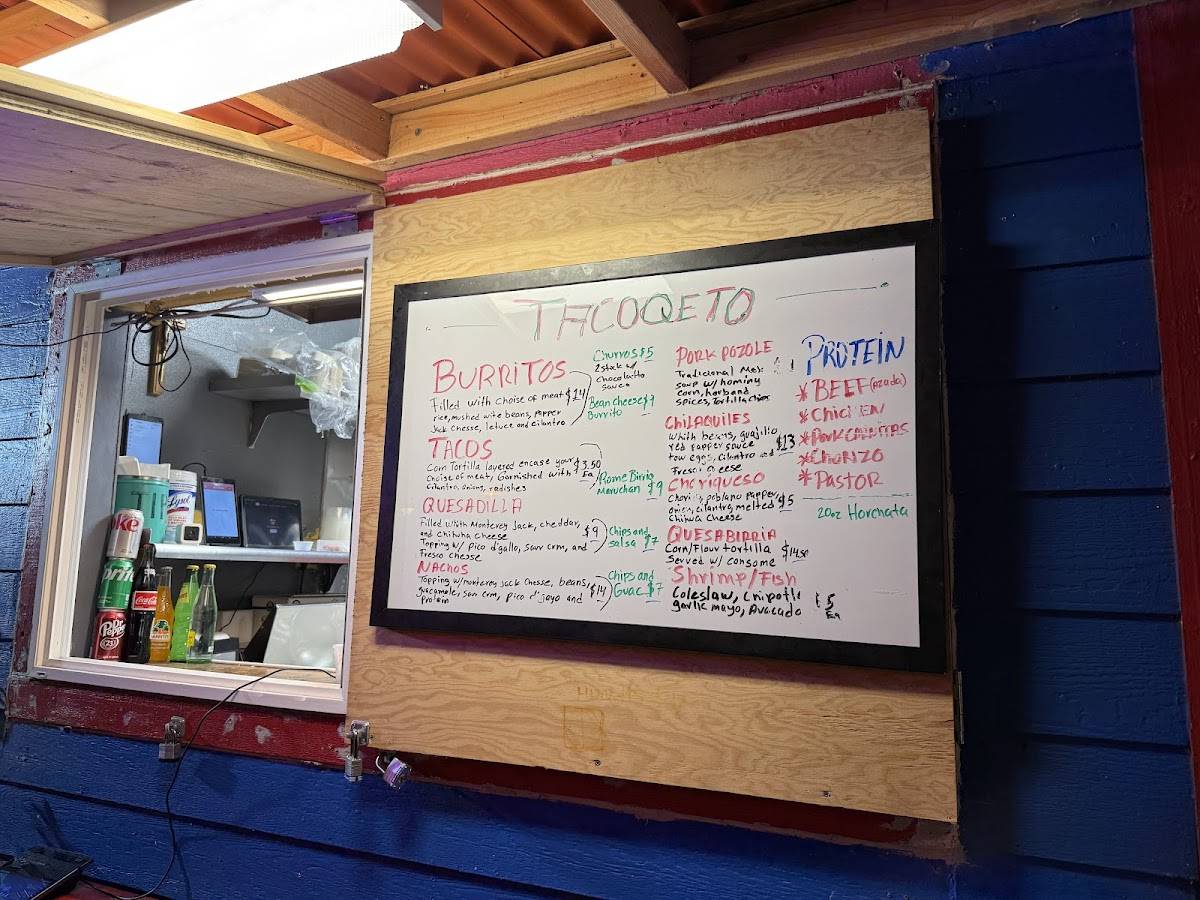 TACOQETO
BURRITOS
Filled with choise of meat $14
rice, mushed wite beans, papper
Jack Chesse, letuce and cilantro
Churros $5
2 stick w/
chocolatto
sauce
Bean Cheese $9
Burrito
TACOS
Corn Tortilla layered encase your $3.50
choise of meat, Garnished with Ea
Cilantro, onions, radishes
Rame Birria
Maruchan $9
QUESADILLA
Filled with Monterey Jack, cheddar,
and Chihwha cheese $9
Topping w/ Pico d'gallo, Sour crm, and
Fresco Chesse
Chips and
salsa $7
NACHOS
Topping w/monterey Jack Chesse, beans,
guacamole, sour crm, pico d'gayo and $14
Protein
Chips and
Guac $7
PORK POZOLE
Tradicional Mex
soup w/ hominy
corn, harb and
spices, Tortilla chips
CHILAQUILES
Whith beans, guajilio
red papper sauce $13
tow eggs, cilantro and
Fresco cheese
Choriqueso
Chori, poblano papper,
onion, cilantro, melted $5
Chihwa Cheese
QUESABIRRIA
Corn/Flour tortilla $14.50
Served w/ consome
Shrimp/Fish
Coleslaw, Chipotle $5
garlic mayo, Avocado Ea
PROTEIN
* BEEF (asada)
* ChicKEN
* Pork CARNITAS
* ChoRIZO
* PastOR
20oz Horchata
Lysol
Coke
Sprite
Dr Pepper
23
Coca-Cola